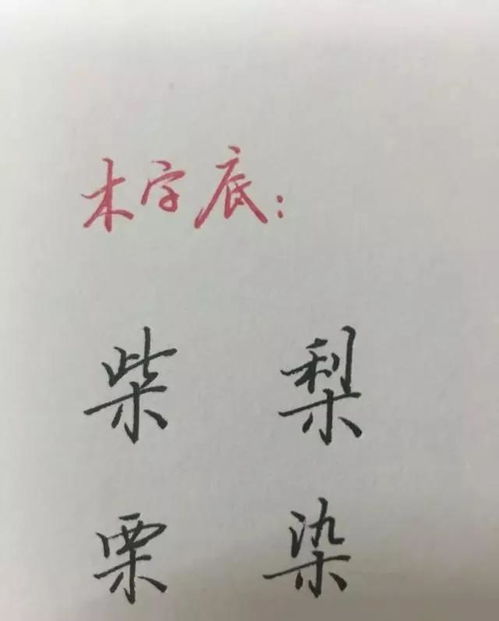 木字底：
柴 梨
栗 染